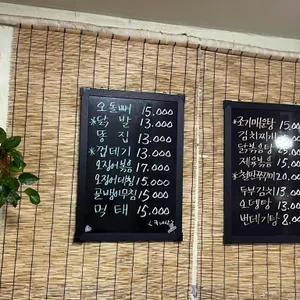 오돌뼈 15.000
*닭발 13.000
똥집 13.000
*껍데기 13.000
오징어볶음 17.000
오징어데침 15.000
골뱅이무침 15.000
먹태 15.000
*조기매운탕 15.00
김치찌개
닭볶음탕
제육볶음 15
20.0
두부김치 13.0
오뎅탕 13.00
번데기탕 8.00